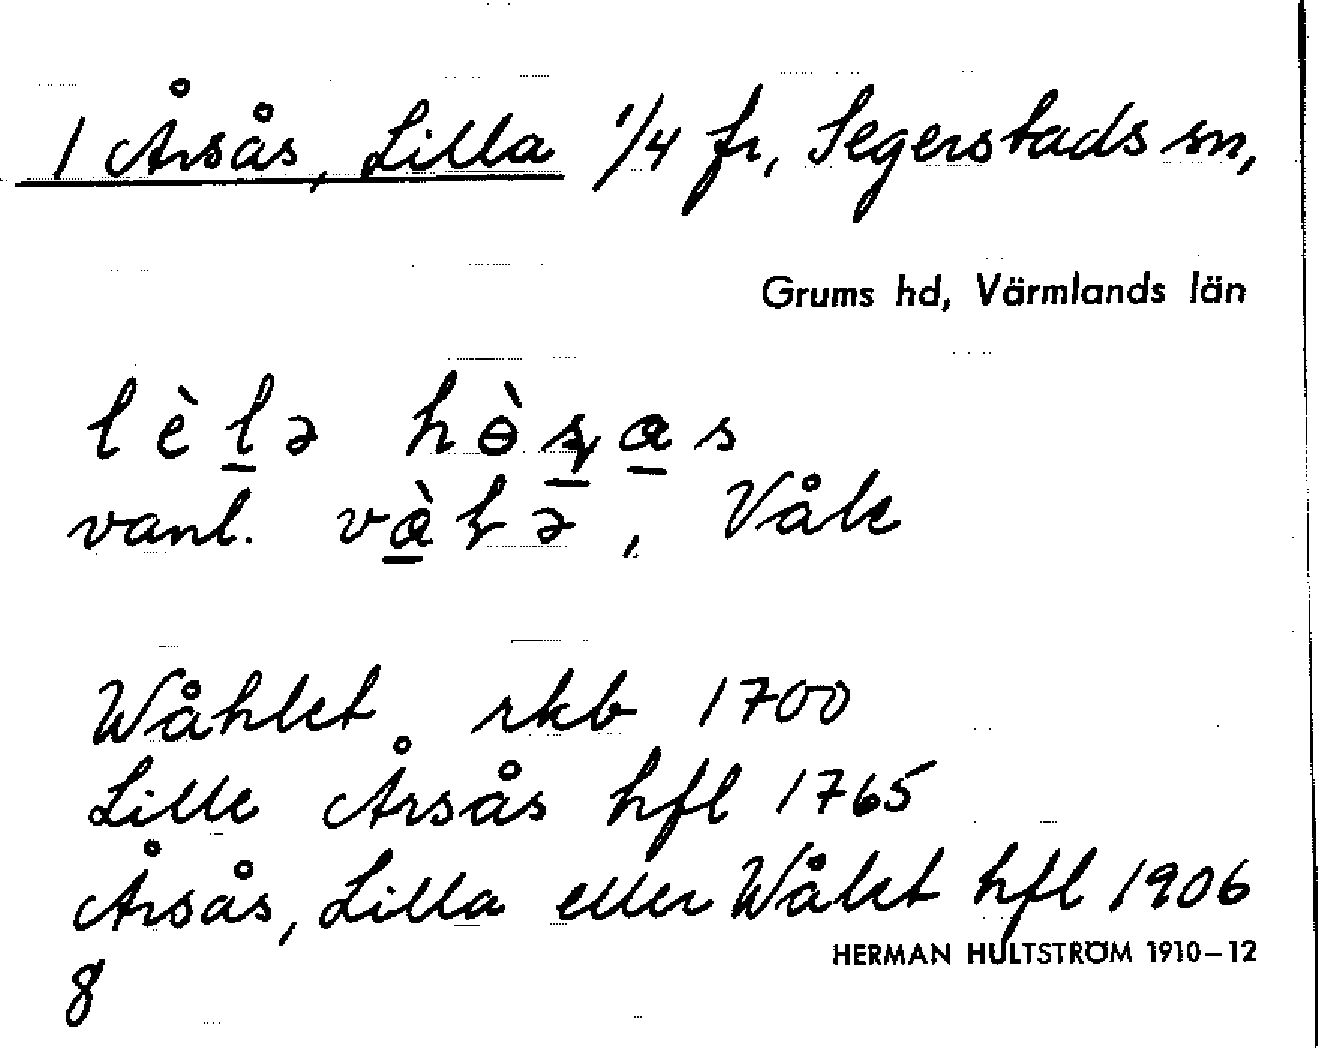 1 Årsås, Lilla 1/4 fr, Segerstads sn,
Grums hd, Värmlands län
lèl̲ə
vanl. , Våle
Wåhlet rkb 1700
Lille Årsås hfl 1765
Årsås, Lilla eller Wålet hfl 1906
HERMAN HULTSTRÖM 1910–12
8